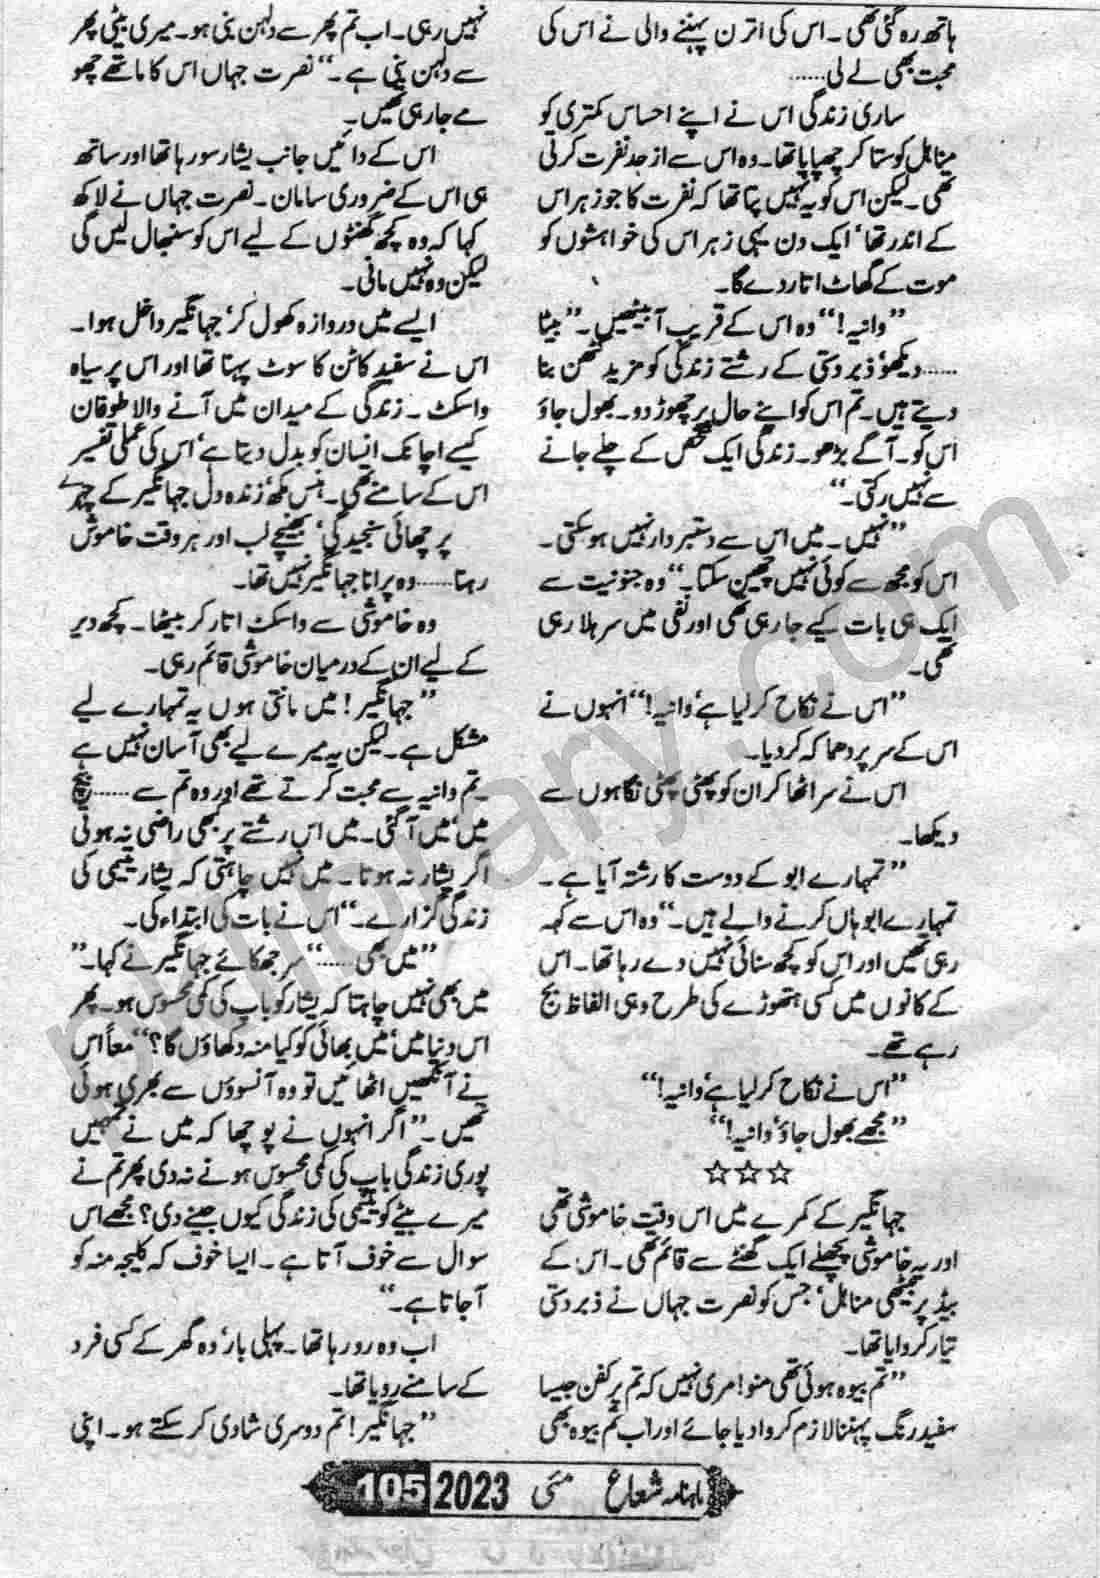 ہاتھ رہ گئی تھی۔ اس کی اترن پہننے والی نے اس کی
محبت بھی لے لی......
ساری زندگی اس نے اپنے احساس کمتری کو
مناہل کو ستا کر چھپایا تھا۔ وہ اس سے ازحد نفرت کرتی
تھی۔ لیکن اس کو یہ نہیں پتا تھا کہ نفرت کا جو زہر اس
کے اندر تھا‘ ایک دن یہی زہر اس کی خواہشوں کو
موت کے گھاٹ اتار دے گا۔
”وانیہ!“ وہ اس کے قریب آ بیٹھیں۔ ”بیٹا
......دیکھو‘ زبردستی کے رشتے زندگی کو مزید کٹھن بنا
دیتے ہیں۔ تم اس کو اپنے حال پر چھوڑ دو۔ بھول جاؤ
اس کو۔ آگے بڑھو۔ زندگی ایک شخص کے چلے جانے
سے نہیں رکتی۔“
”نہیں۔ میں اس سے دستبردار نہیں ہو سکتی۔
اس کو مجھ سے کوئی نہیں چھین سکتا۔“ وہ جنونیت سے
ایک ہی بات کیے جا رہی تھی اور نفی میں سر ہلا رہی
تھی۔
”اس نے نکاح کر لیا ہے‘ وانیہ!“ انہوں نے
اس کے سر پر دھماکہ کر دیا۔
اس نے سر اٹھا کر ان کو پھٹی پھٹی نگاہوں سے
دیکھا۔
”تمہارے ابو کے دوست کا رشتہ آیا ہے۔
تمہارے ابو ہاں کرنے والے ہیں۔“ وہ اس سے کہہ
رہی تھیں اور اس کو کچھ سنائی نہیں دے رہا تھا۔ اس
کے کانوں میں کسی ہتھوڑے کی طرح وہی الفاظ بج
رہے تھے۔
”اس نے نکاح کر لیا ہے‘ وانیہ!“
”مجھے بھول جاؤ‘ وانیہ!“
☆☆☆
جہانگیر کے کمرے میں اس وقت خاموشی تھی
اور یہ خاموشی پچھلے ایک گھنٹے سے قائم تھی۔ اس کے
بیڈ پر بیٹھی مناہل‘ جس کو نصرت جہاں نے ذبردستی
تیار کروایا تھا۔
”تم بیوہ ہوئی تھی منو! مری نہیں کہ تم پر کفن جیسا
سفید رنگ پہننا لازم کروا دیا جائے اور اب تم بیوہ بھی
نہیں رہی۔ اب تم پھر سے دلہن بنی ہو۔ میری بیٹی پھر
سے دلہن بنی ہے۔“ نصرت جہاں اس کا ماتھے چھو
مے جا رہی تھیں۔
اس کے دائیں جانب یشار سو رہا تھا اور ساتھ
ہی اس کے ضروری سامان۔ نصرت جہاں نے لاکھ
کہا کہ وہ کچھ گھنٹوں کے لیے اس کو سنبھال لیں گی
لیکن وہ نہیں مانی۔
ایسے میں دروازہ کھول کر‘ جہانگیر داخل ہوا۔
اس نے سفید کاٹن کا سوٹ پہنا تھا اور اس پر سیاہ
واسکٹ۔ زندگی کے میدان میں آنے والا طوفان
کیسے اچانک انسان کو بدل دیتا ہے‘ اس کی عملی تفسیر
اس کے سامنے تھی۔ ہنس مکھ‘ زندہ دل جہانگیر کے چہرے
پر چھائی سنجیدگی‘ بھنچے لب اور ہر وقت خاموش
رہنا...... وہ پرانا جہانگیر نہیں تھا۔
وہ خاموشی سے واسکٹ اتار کر بیٹھا۔ کچھ دیر
کے لیے ان کے درمیان خاموشی قائم رہی۔
”جہانگیر! میں مانتی ہوں یہ تمہارے لیے
مشکل ہے۔ لیکن یہ میرے لیے بھی آسان نہیں ہے
۔ تم وانیہ سے محبت کرتے تھے اور وہ تم سے...... بیچ
میں‘ میں آ گئی۔ میں اس رشتے پر کبھی راضی نہ ہوتی
اگر یشار نہ ہوتا۔ میں نہیں چاہتی کہ یشار یتیمی کی
زندگی گزارے۔“ اس نے بات کی ابتداء کی۔
”میں بھی......“ سر جھکائے جہانگیر نے کہا۔ ”
میں بھی نہیں چاہتا کہ یشار کو باپ کی کمی محسوس ہو۔ پھر
اس دنیا میں‘ میں بھائی کو کیا منہ دکھاؤں گا؟“ معاً اس
نے آنکھیں اٹھائیں تو وہ آنسوؤں سے بھری ہوئی
تھیں۔ ”اگر انہوں نے پوچھا کہ میں نے تمہیں
پوری زندگی باپ کی کمی محسوس ہونے نہ دی پھر تم نے
میرے بیٹے کو یتیمی کی زندگی کیوں جینے دی؟ مجھے اس
سوال سے خوف آتا ہے۔ ایسا خوف کہ کلیجہ منہ کو
آ جاتا ہے۔“
اب وہ رو رہا تھا۔ پہلی بار‘ وہ گھر کے کسی فرد
کے سامنے رویا تھا۔
”جہانگیر! تم دوسری شادی کر سکتے ہو۔ اپنی
ماہنامہ شعاع مئی 2023 105